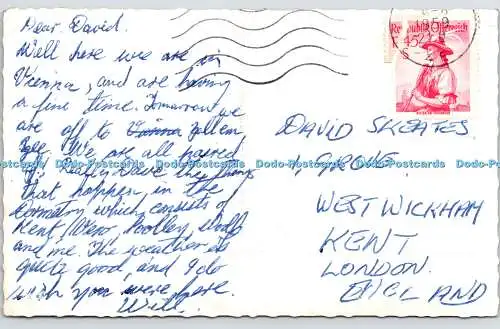 Dear David.
Well here we are in
Vienna, and are having
a fine time. Tomorrow we
are off to Vienna Zellem
See. We are all
Really Dave the things
that happen, in the
Dormitory which consists of
Kent,
and me. The weather is
quite good, and I do
wish you were here.
Will.
Republik Österreich
1959
DAVID SKEATES.
WEST WICKHAM
KENT
LONDON.
ENGLAND
Dodo-Postcards Dodo-Postcards Dodo-Postcards Dodo-Postcards